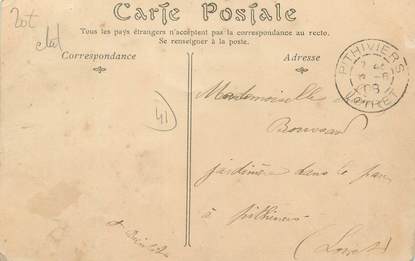 Carte Postale
Tous les pays étrangers n'acceptent pas la correspondance au recto.
Se renseigner à la poste.
Correspondance
Adresse
PITHIVIERS
LOIRET
41
Mademoiselle
jardinière dans le
à pithiviers
(Loiret)